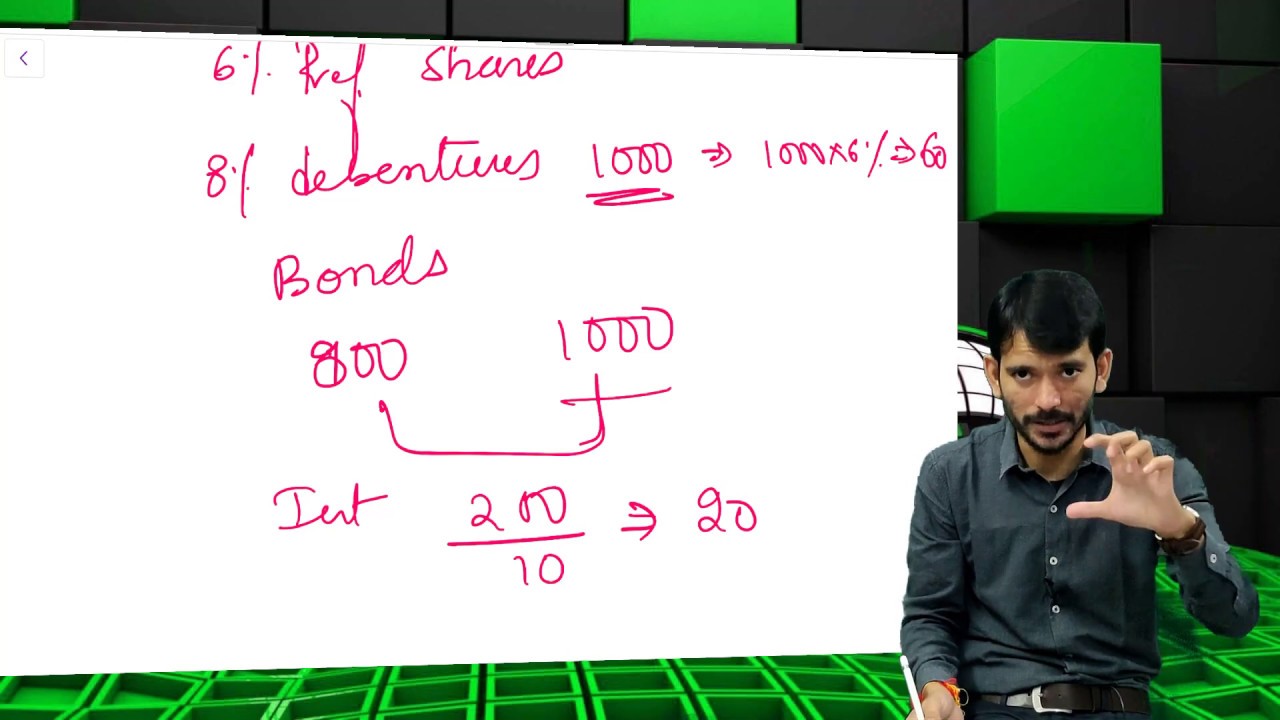 6% Pref Shares
8% debentures 1000 ⇒ 1000×6% ⇒ 60
Bonds
800 1000
Int 200/10 ⇒ 20